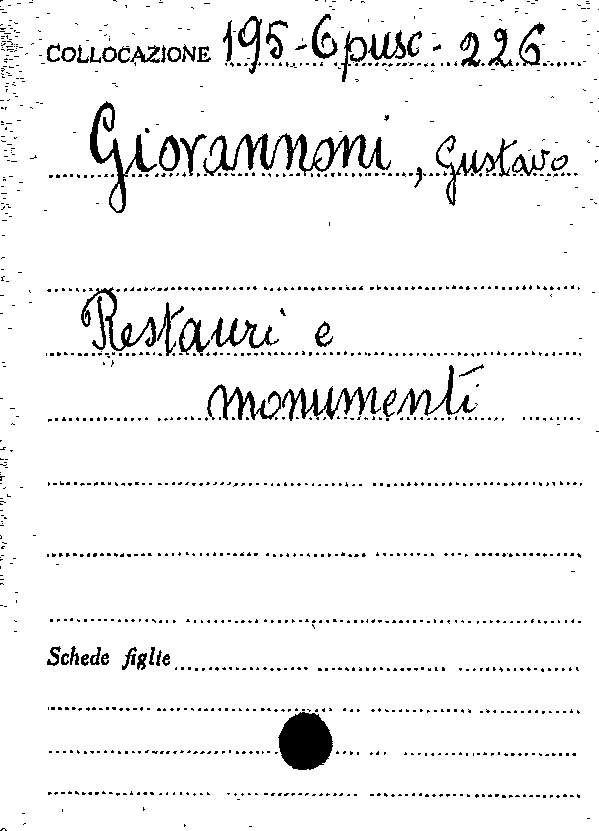 COLLOCAZIONE 195-Opusc-226
Giovannoni, Gustavo
Restauri e
monumenti
Schede figlie